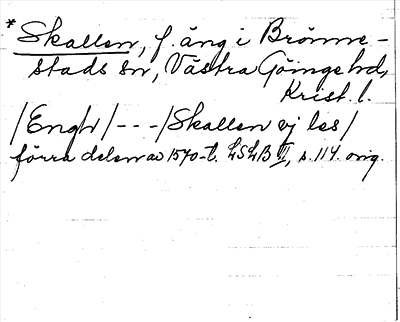 *Skallen, f. äng i Brönne-
stads sn, Västra Göinge hd,
Krist. l.
/Engh/ - - - /Skallen vj les/
förra delen av 1570-t. LSLB III, s. 114. orig.